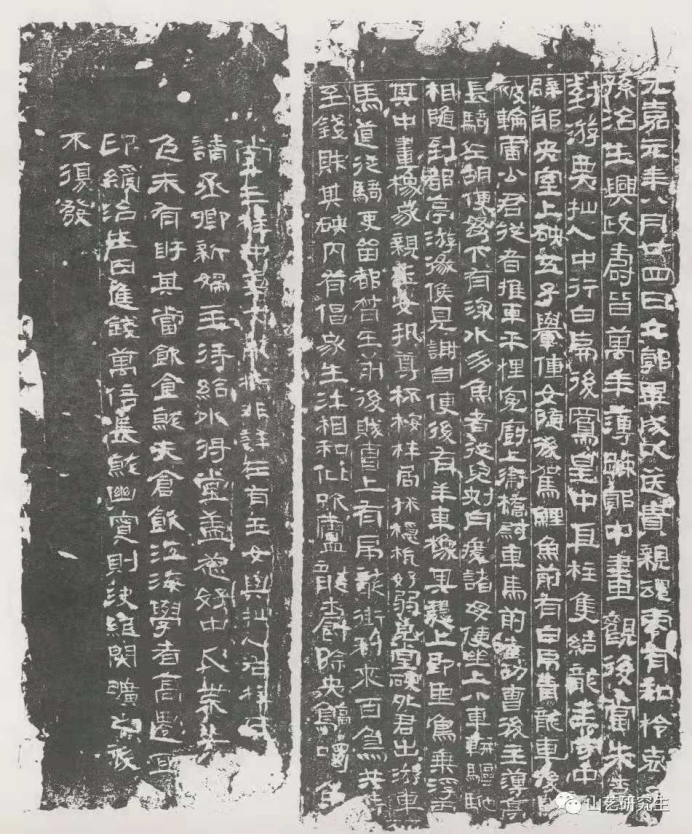 元嘉元年八月廿四日立郭畢成以送貴親魂靈有知怜哀子
孫治生興政壽皆萬年薄踈郭中畫觀後當朱爵
對游㒨人中行白虎後鳳皇中直柱隻結龍主守中
辟邪央室上硤五子轝僮女隨後駕鯉魚前有白虎青龍車後即
被輪雷公君從者推車平理冤厨上衛橋尉車馬前者功曹後主簿亭
長騎佐胡使弩下有深水多魚者從兒刺舟渡諸母使坐上小車軿驅馳
相隨到都亭游徼候見謝自便後有羊車橡其槥上即聖鳥乘浮雲
其中畫橡家親玉女執尊杯桉柈局秝穩杭好弱皃堂硤外君出游車
馬道從騎吏留都督在前後賊曹上有虎龍銜利來百鳥共持
至錢財其硤內有倡家生汙相和仳吹廬龍爵除央鶴噣魚
堂三柱中龍非詳左有玉女與㒨人右柱
請丞卿新婦主待給水將堂盖葱好中瓜葉上
包末有盱其當飲食就夫倉飲江海學者高遷宜
印綬治生日進錢萬倍長就幽冥則決絕閉曠之後
不復發
山艺研究生